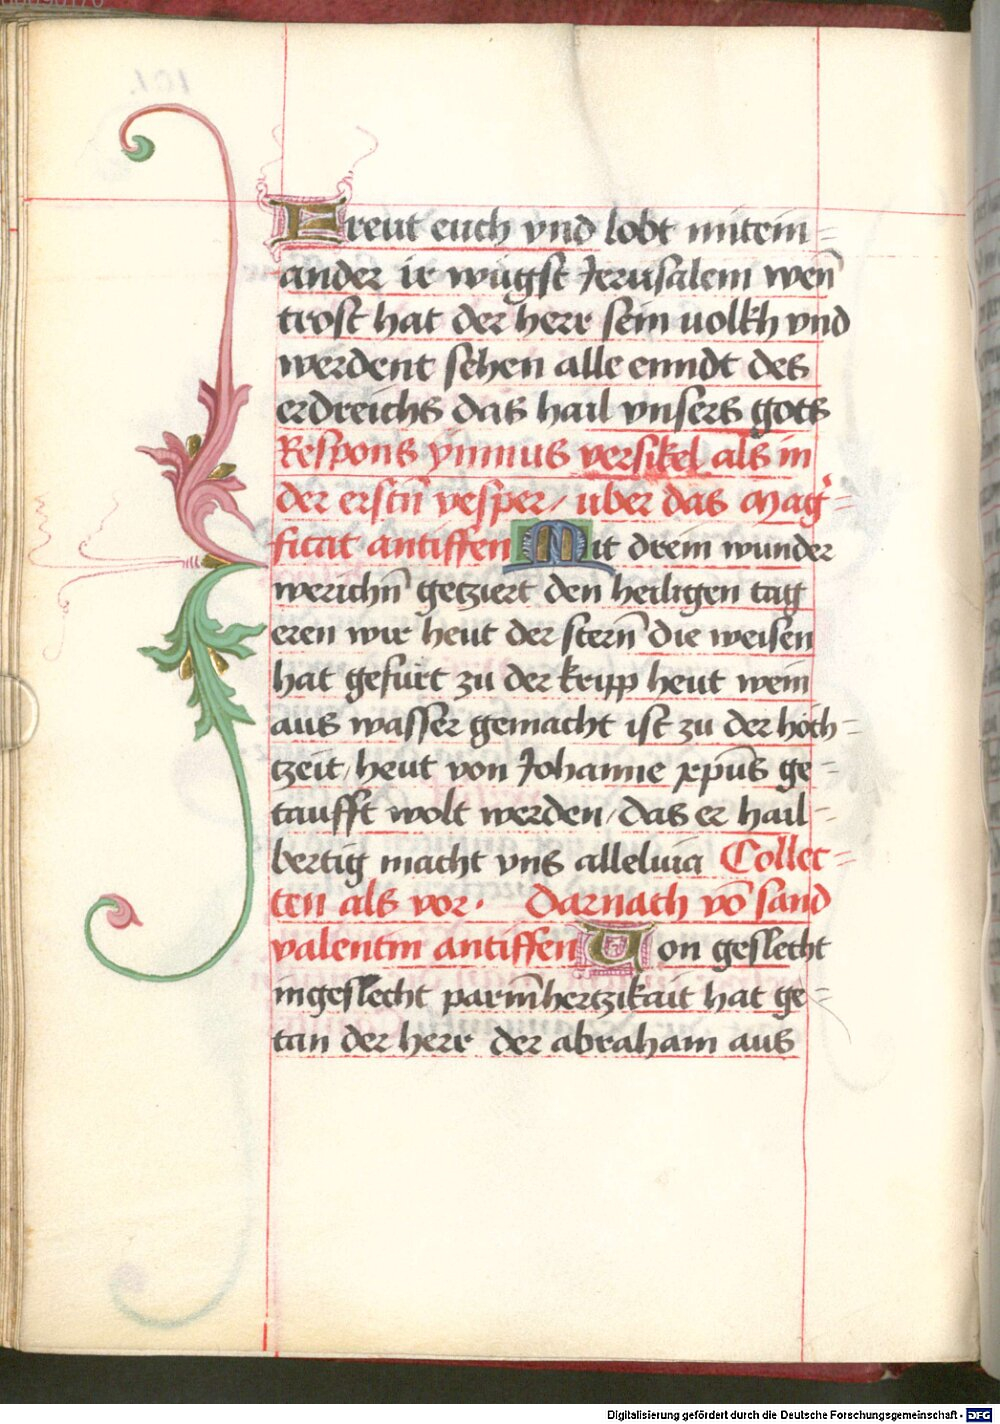 Ereut euch vnd lobt mitein=
ander ir wügst Jerusalem wen̄
trost hat der herr sein uolkh vnd
werdent sehen alle enndt des
erdreichs das hail vnsers gots
Respons ymnus versikel als in
der erstn̄ vesper / uber das mag=
ficat antiffen Mit drem wunder
werichn̄ getziert den heiligen tag
eren wir heut der stern̄ die weisen
hat gefürt zu der kripp heut wein
aus wasser gemacht ist zu der hoch=
tzeit / heut von Johanne xp̄us ge=
taufft wolt werden / das er hail=
bertig macht vns alleluia Collec=
ten als vor · Darnach vō sand
valentin antiffen Uon geslecht
ingeslecht parm̄hertzikait hat ge=
tan der herr der abraham aus
Digitalisierung gefördert durch die Deutsche Forschungsgemeinschaft - DFG